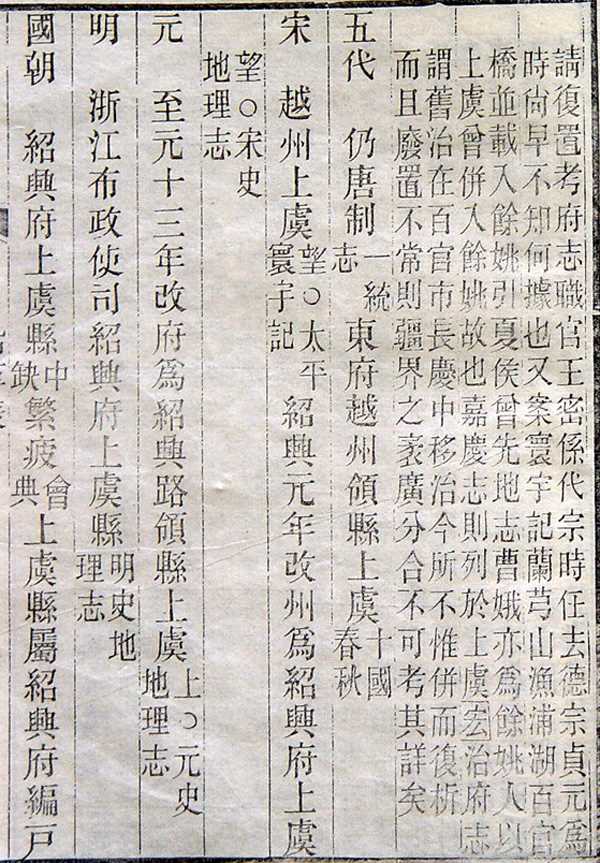 請復置考府志職官王密係代宗時任去德宗貞元爲
時尚早不知何據也又案寰宇記蘭芎山漁浦湖百官
橋並載入餘姚引夏侯曾先地志曹娥亦爲餘姚人以
上虞曾併入餘姚故也嘉慶志則列於上虞云治府志
謂舊治在百官市長慶中移治今所不惟併而復析
而且廢置不常則疆界之袤廣分合不可考其詳矣
五代 仍唐制一統志 東府越州領縣上虞十國春秋
宋 越州上虞望○太平寰宇記 紹興元年改州爲紹興府上虞
望○宋史地理志
元 至元十三年改府爲紹興路領縣上虞上○元史地理志
明 浙江布政使司紹興府上虞縣明史地理志
國朝 紹興府上虞縣中缺繁疲會典 上虞縣屬紹興府編戶